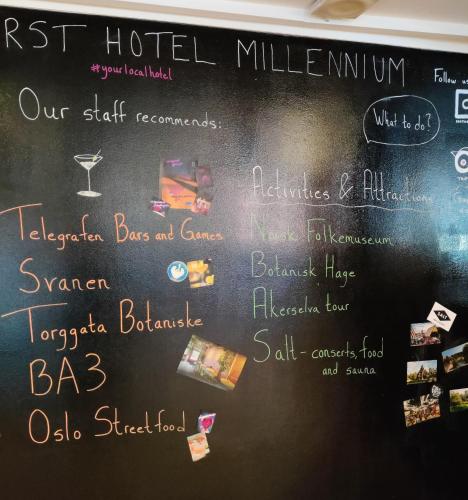 RST HOTEL MILLENNIUM
#yourlocalhotel
Follow us
Our staff recommends:
What to do?
Activities & Attractions
Telegrafen Bars and Games
Norsk Folkemuseum
Svanen
Botanisk Hage
Torggata Botaniske
Akerselva tour
BA3
Salt - conserts, food
and sauna
Oslo Streetfood
SALT